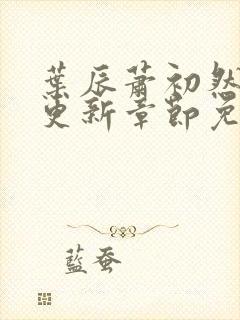 葉辰蕭初然
更新章節免
藍蚕